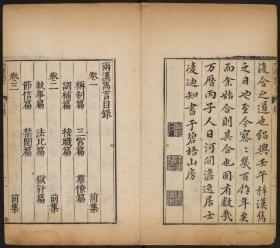 合之道也紹興壬午梓漢雋
之日也至今寥寥幾百年矣
而余始合則其合也固有數哉
万曆丙子人日河間逸居士
凌迪知書于碧梧山房
兩漢雋言目錄
卷一 前集
稱制篇 三宮篇 羣僚篇
調補篇 職篇
卷二 前集
執事篇 法比篇 獄訐篇
節信篇 禁闥篇
卷三 前集